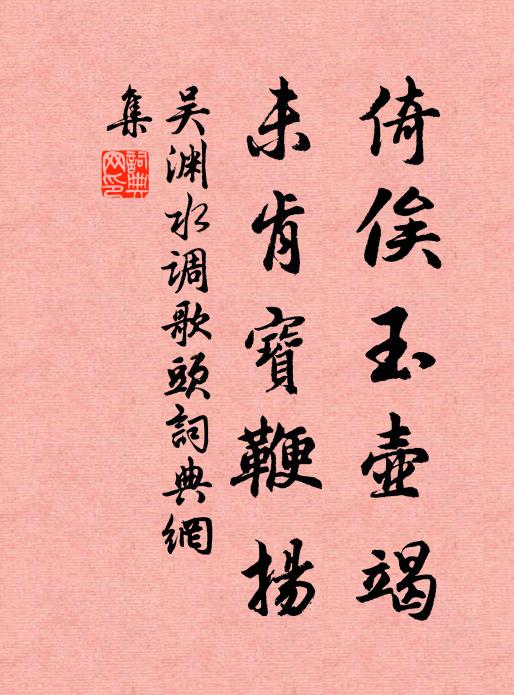 倚俟玉壺竭
未肯寶鞭揚
吴渊水调歌頭詞典網
集
詞典網印